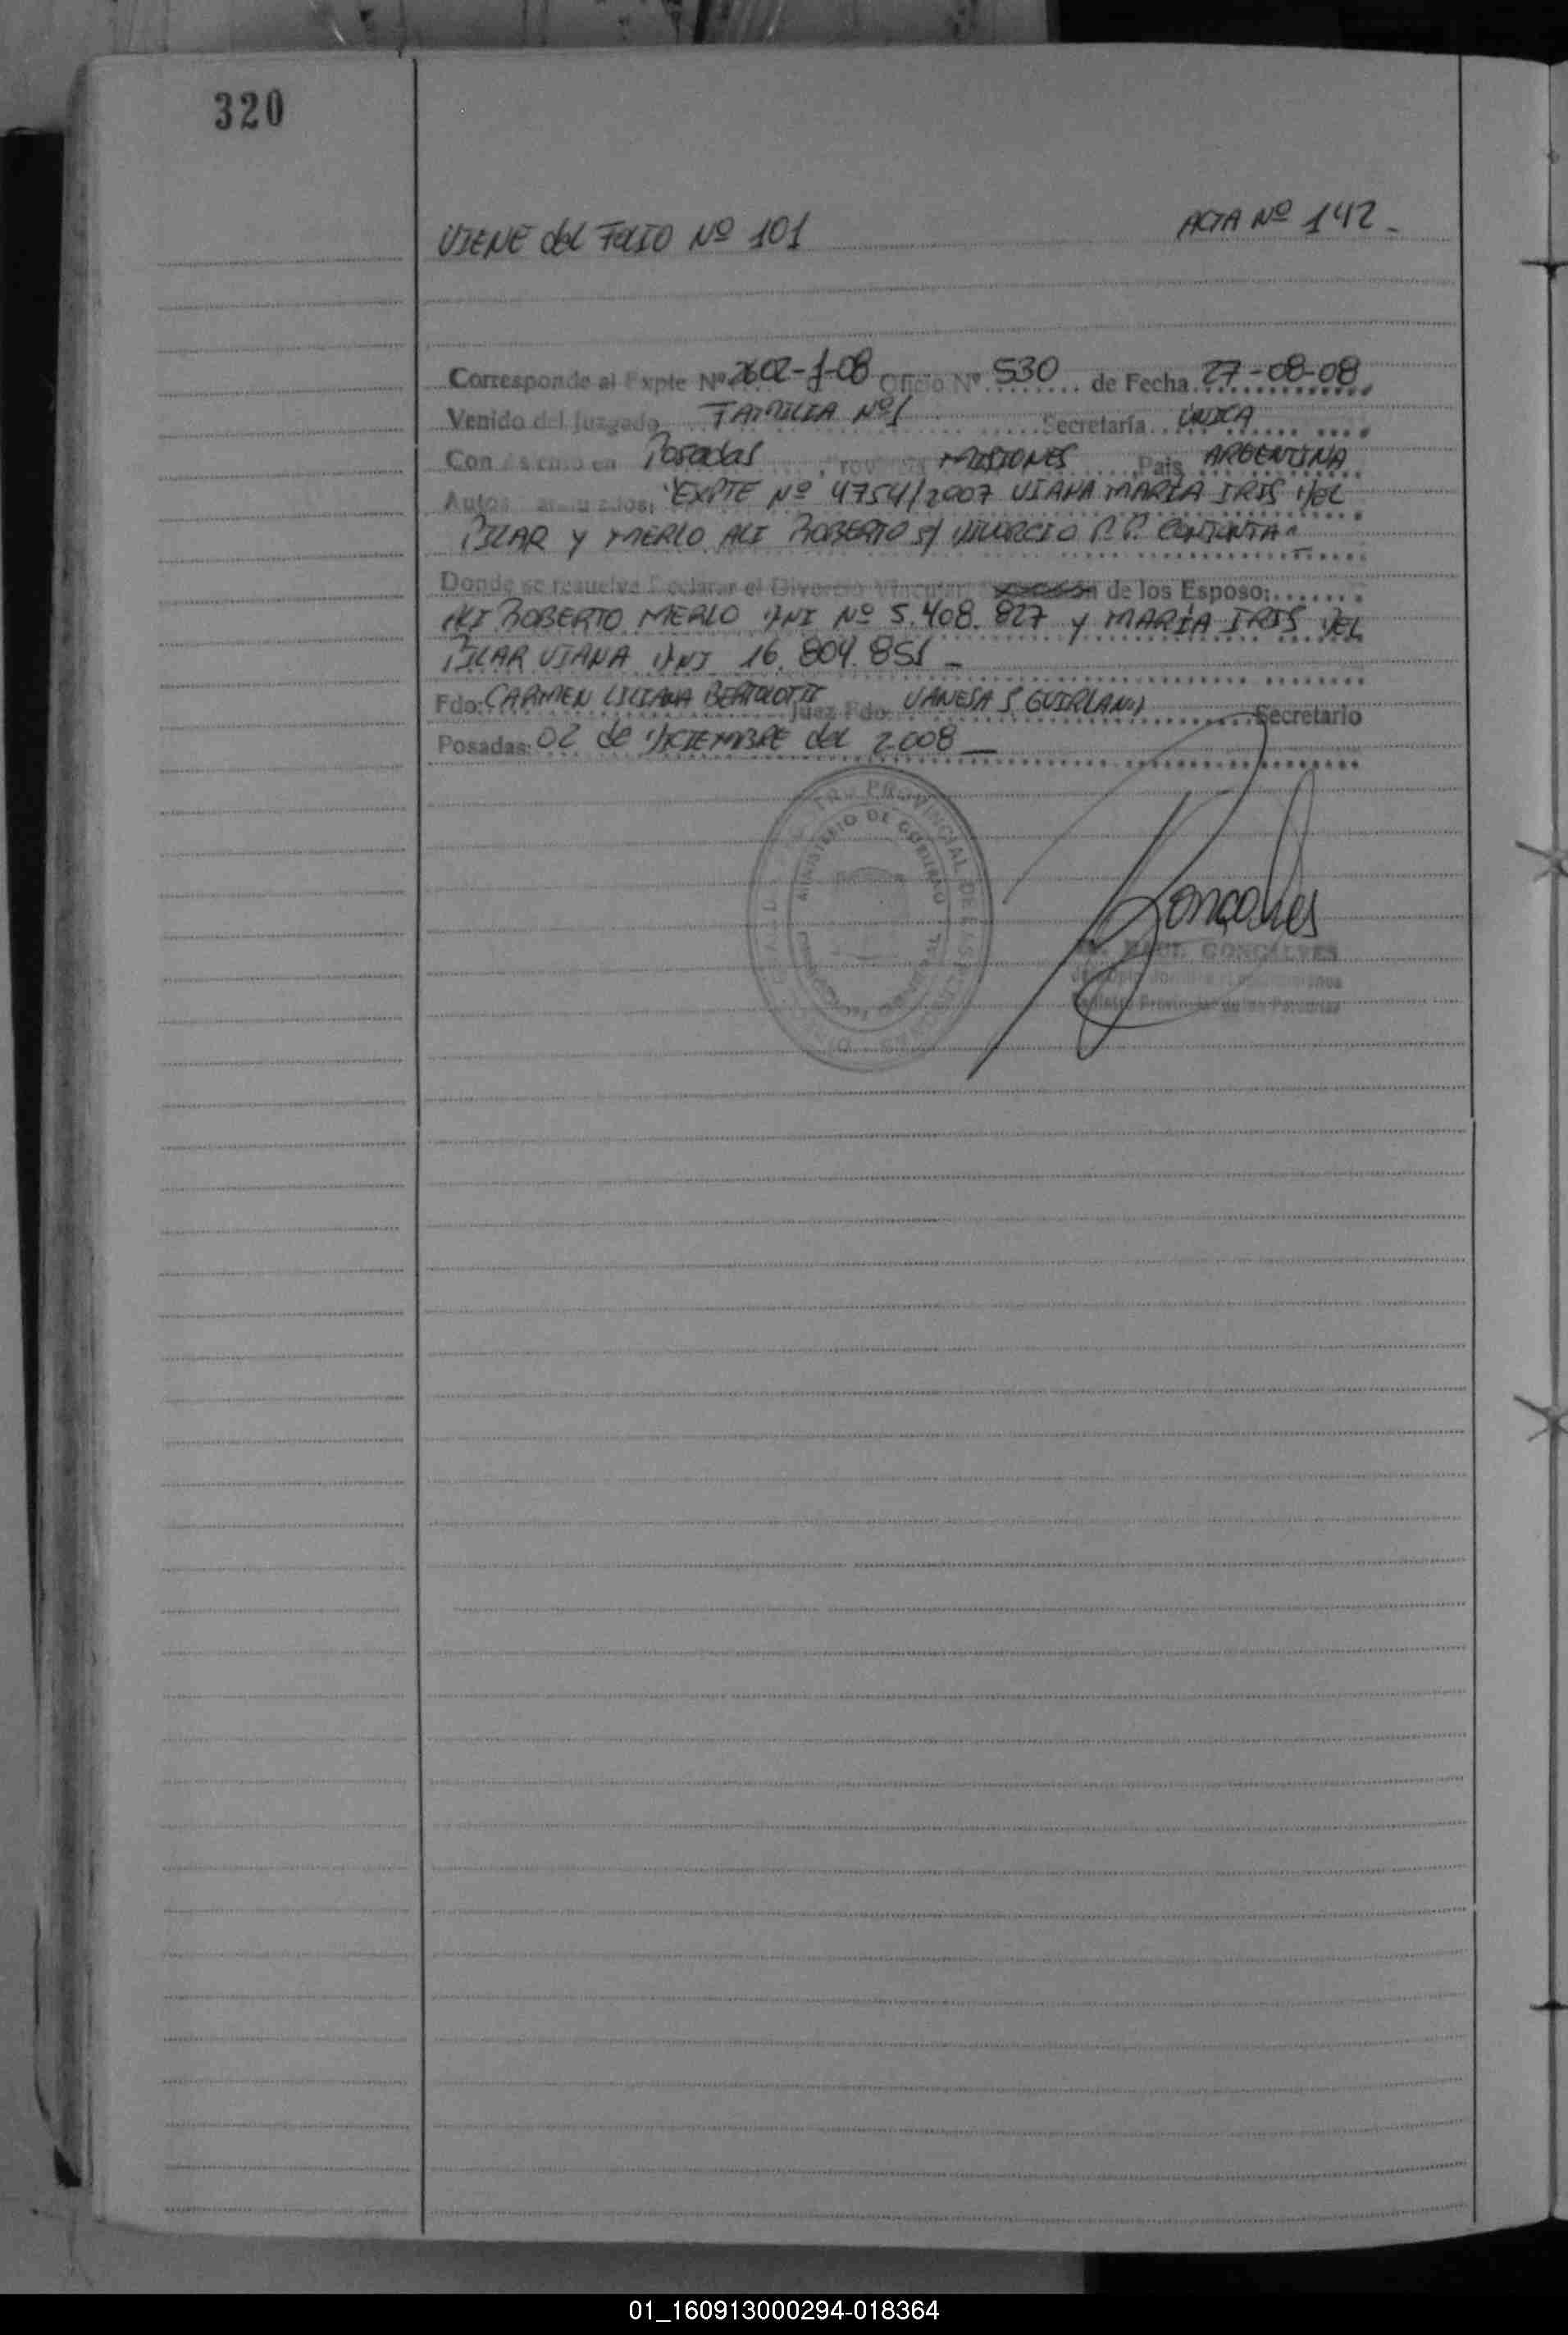 320
VIENE del FOLIO Nº 101
ACTA Nº 142-
Corresponde al Expte Nº 2602-J-08 Oficio Nº 530 de Fecha 27-08-08
Venido del Juzgado FAMILIA Nº1 Secretaría UNICA
Con Asiento en Posadas Provincia MISIONES País ARGENTINA
Autos "EXPTE Nº 4754/2007 VIANA MARIA IRIS DEL
PILAR Y MERLO ALI ROBERTO S/ DIVORCIO P.P. CONJUNTA"
Donde se resuelve Declarar el Divorcio Vincular de los Esposo:
ALI ROBERTO MERLO DNI Nº 5.408.827 y MARÍA IRIS DEL
PILAR VIANA DNI 16.804.851-
Fdo: CARMEN LILIANA BERTOLOTTI Juez Fdo: VANESA S. Secretario
Posadas: 02 de DICIEMBRE del 2008
PROVINCIAL DE LAS
MINISTERIO DE GOBIERNO
Goncalves
RAUL GONCALVES
Registro Provincial de las Personas
01_160913000294-018364